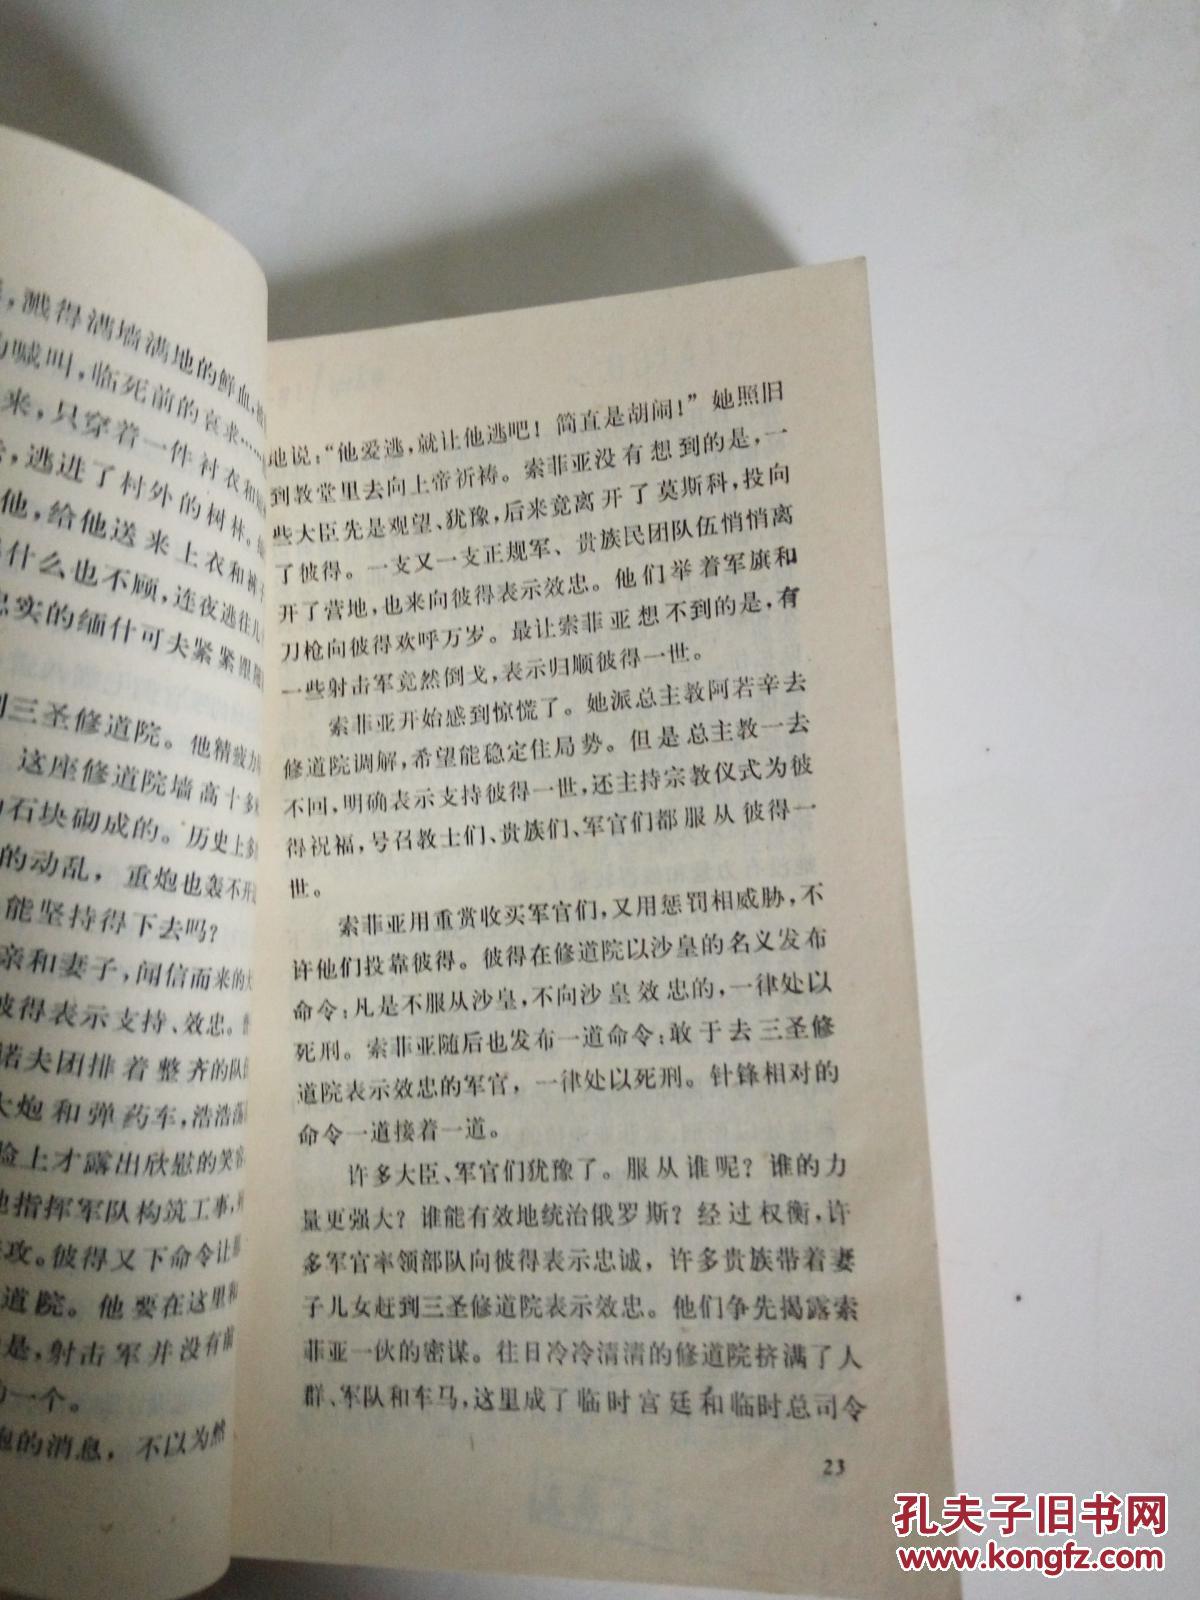 ，溅得满墙满地的鲜血，被
喊叫，临死前的哀求……
来，只穿着一件衬衣和
，逃进了村外的树林。
他，给他送来上衣和裤
什么也不顾，连夜逃往
忠实的缅什可夫紧紧跟随
到三圣修道院。他精疲力
这座修道院墙高十多
石块砌成的。历史上多
的动乱，重炮也轰不
能坚持得下去吗？
亲和妻子，闻信而来的大
彼得表示支持、效忠。
诺夫团排着整齐的队
大炮和弹药车，浩浩荡
脸上才露出欣慰的笑容
他指挥军队构筑工事，
攻。彼得又下命令让
道院。他要在这里和
是，射击军并没有前
的一个。
跑的消息，不以为然
地说：“他爱逃，就让他逃吧！简直是胡闹！”她照旧
到教堂里去向上帝祈祷。索菲亚没有想到的是，一
些大臣先是观望、犹豫，后来竟离开了莫斯科，投向
了彼得。一支又一支正规军、贵族民团队伍悄悄离
开了营地，也来向彼得表示效忠。他们举着军旗和
刀枪向彼得欢呼万岁。最让索菲亚想不到的是，有
一些射击军竟然倒戈，表示归顺彼得一世。
索菲亚开始感到惊慌了。她派总主教阿若辛去
修道院调解，希望能稳定住局势。但是总主教一去
不回，明确表示支持彼得一世，还主持宗教仪式为彼
得祝福，号召教士们、贵族们、军官们都服从彼得一
世。
索菲亚用重赏收买军官们，又用惩罚相威胁，不
许他们投靠彼得。彼得在修道院以沙皇的名义发布
命令：凡是不服从沙皇，不向沙皇效忠的，一律处以
死刑。索菲亚随后也发布一道命令：敢于去三圣修
道院表示效忠的军官，一律处以死刑。针锋相对的
命令一道接着一道。
许多大臣、军官们犹豫了。服从谁呢？谁的力
量更强大？谁能有效地统治俄罗斯？经过权衡，许
多军官率领部队向彼得表示忠诚，许多贵族带着妻
子儿女赶到三圣修道院表示效忠。他们争先揭露索
菲亚一伙的密谋。往日冷冷清清的修道院挤满了人
群、军队和车马，这里成了临时宫廷和临时总司令
23
孔夫子旧书网
www.kongfz.com